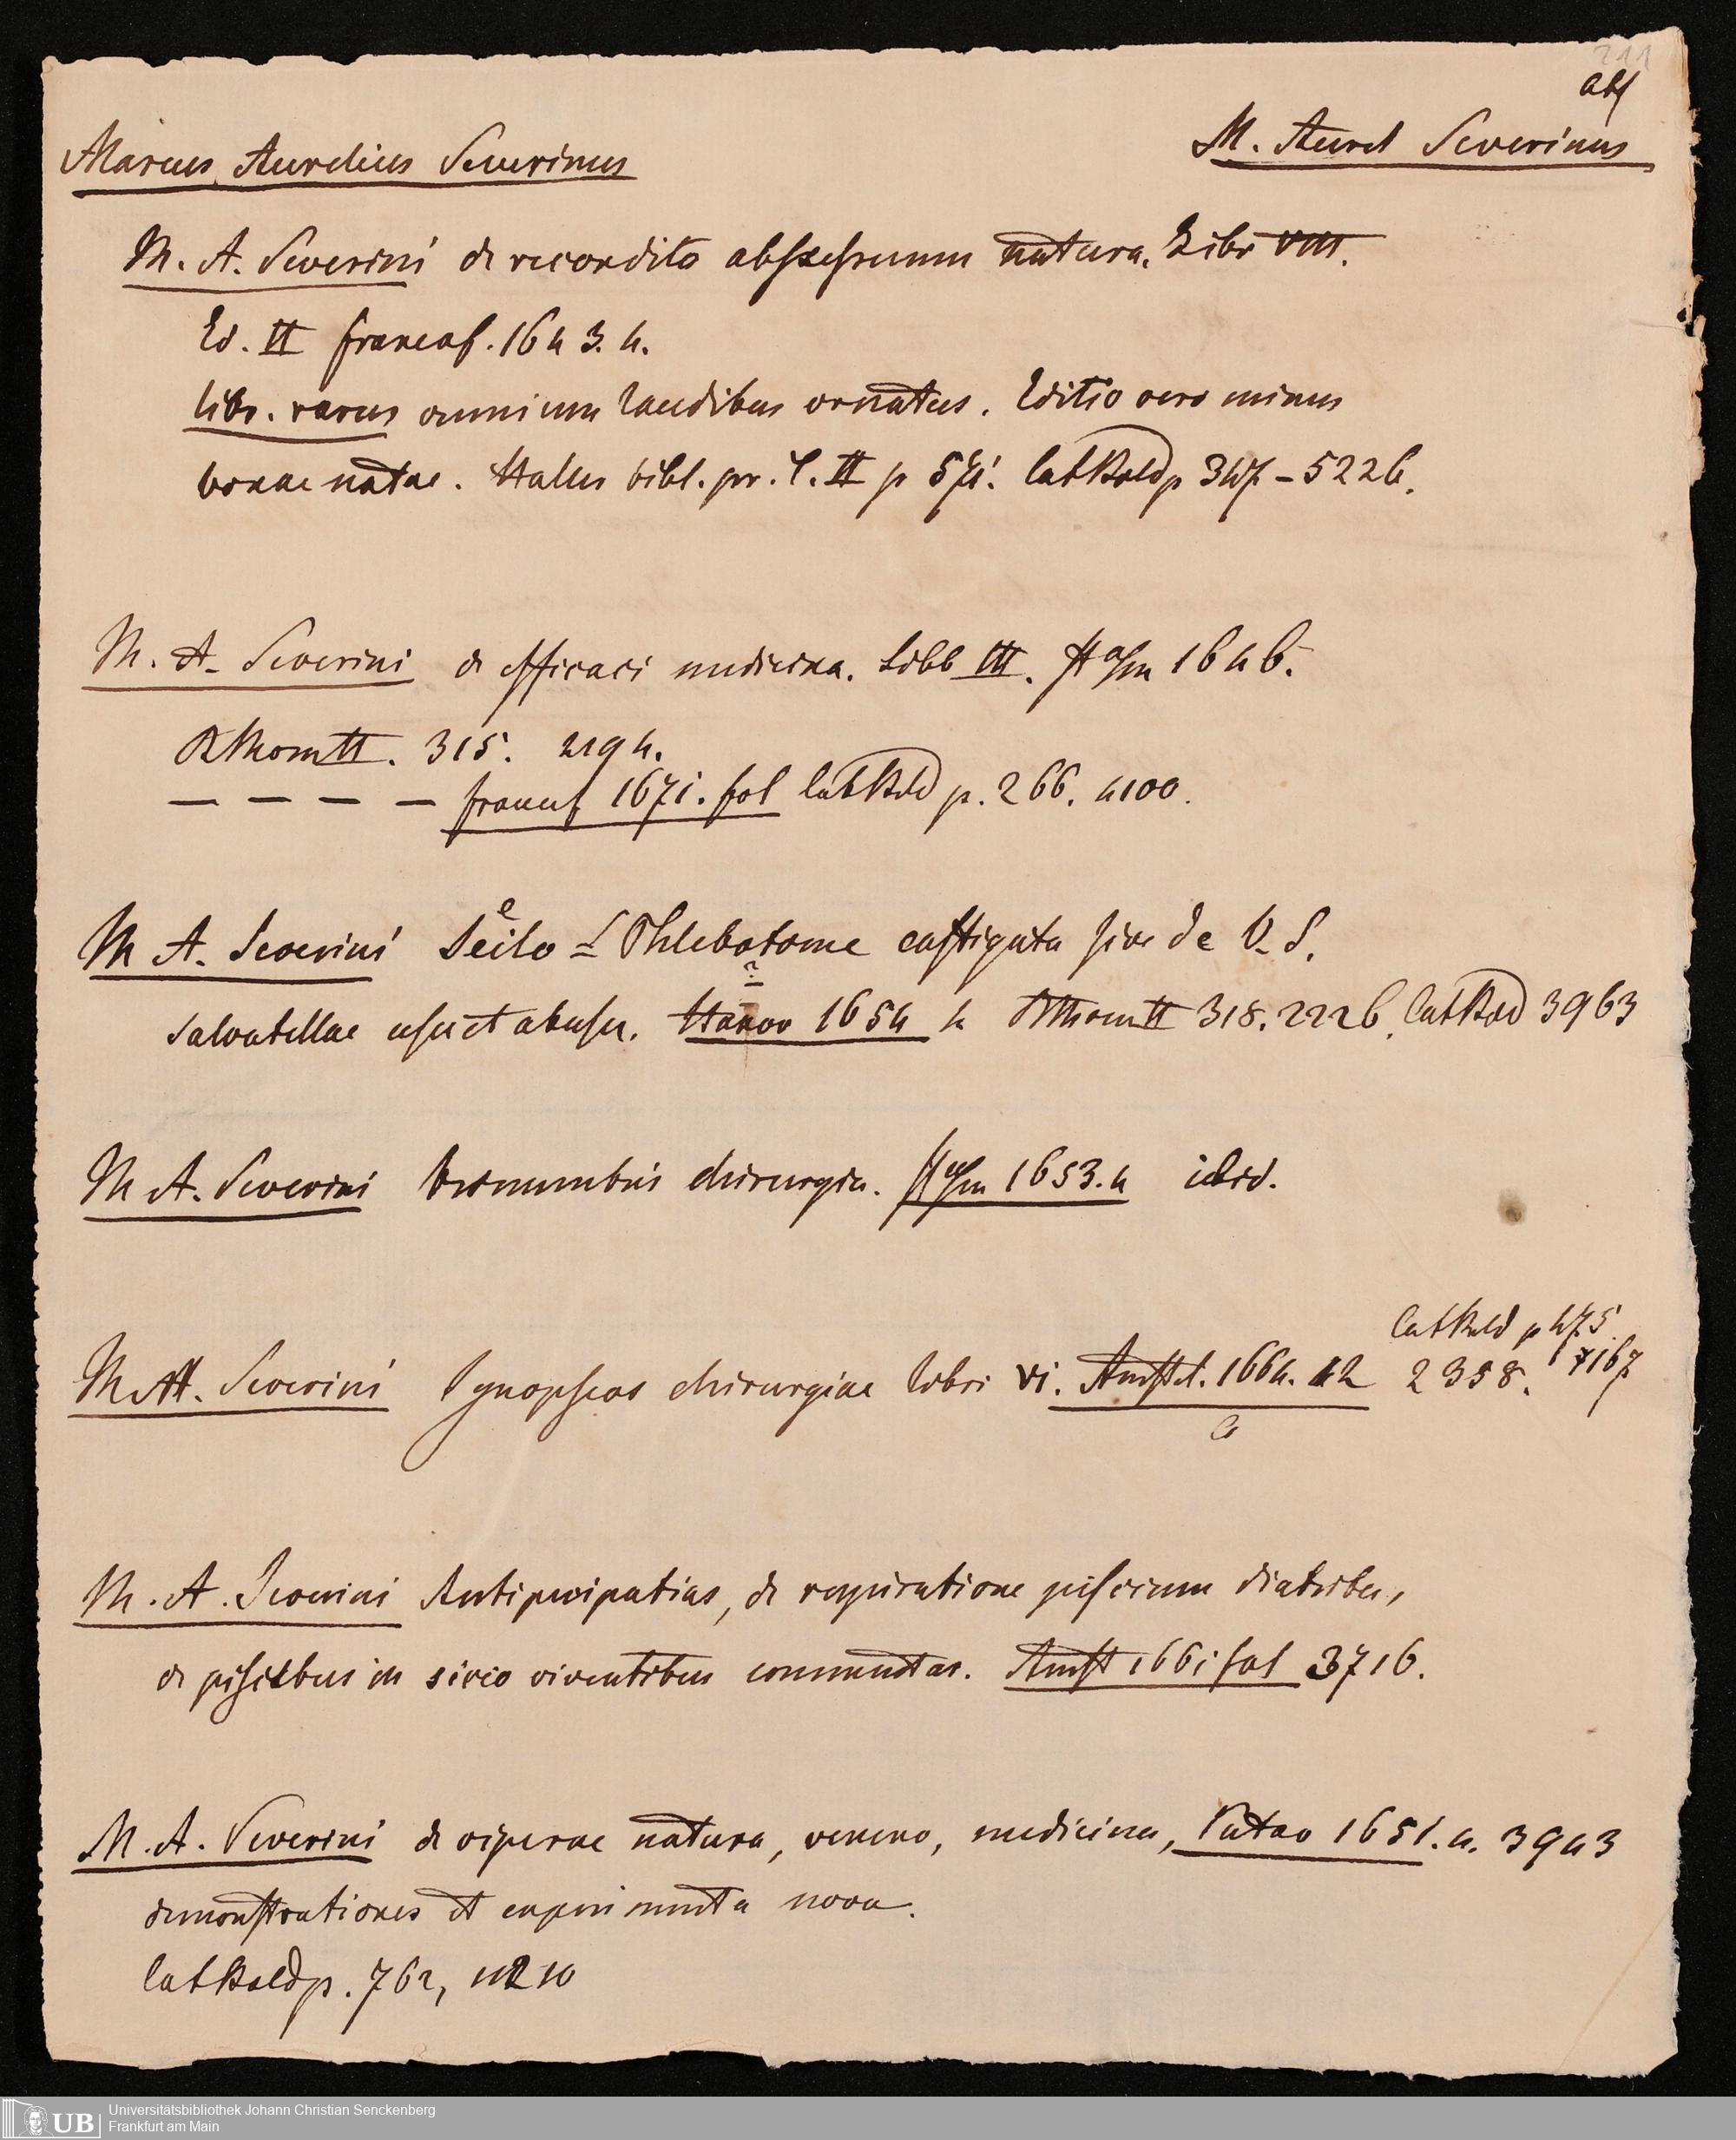 211
abs
Marcus Aurelius Severinus
M. Aurel Severinus
M. A. Severini de recondita abscessuum natura. Libr VIII.
Ed. II francof. 1643. 4.
libr. rarus omnium laudibus ornatus. Editio vero minus
bonae notae. Haller bibl. pr. T. II p CatBald p 347 – 5226.
M. A. Severini de efficaci medicina. Libb III. ffurt a/m 1646.
RthomII. 315. 2194.
— — — — francof 1671. fol CatBald p. 266. 4100.
M A. Severini Seilo Phlebotome castigata sive de V. S.
salvatellae usu et abusu. Hanov 1654 4 RthomII 318. 2226. CatBald 3963
?
M A. Severini trimembris chirurgia. ffurt a/m 1653. 4 ibid.
CatBald p 475.
M A. Severini Synopseos chirurgiae libri VI. Amstel. 1664. 12 2358. 7167
M. A. Severini Antiperipatias, de respiratione piscium diatribe,
de piscibus in sicco viventibus commentar. Amst 1661 fol 3716.
M. A. Severini de viperae natura, veneno, medicina, Patav 1651. 4. 3943
demonstrationes et experimenta nova.
CatBald p. 762,
UB
Universitätsbibliothek Johann Christian Senckenberg
Frankfurt am Main